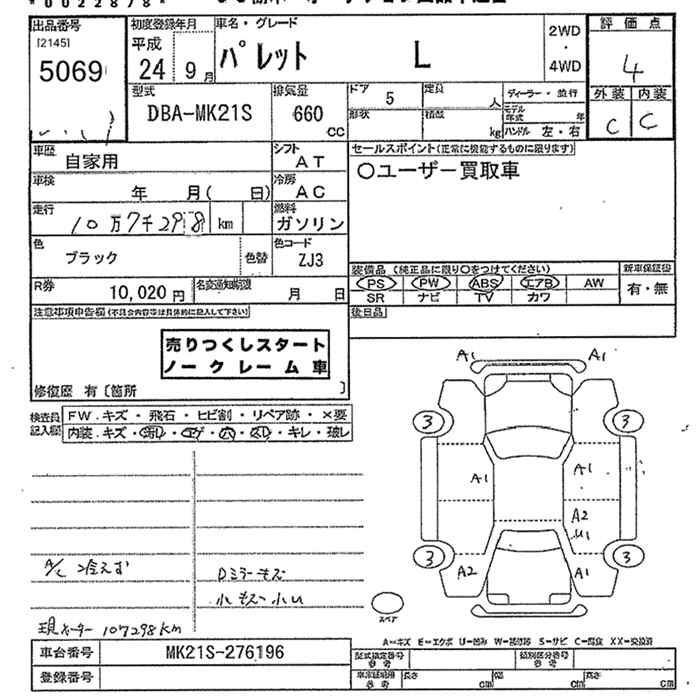 *0022878*
出品番号 初度登録年月 車名・グレード 評価点
[2145] 平成 2WD
5069 24 9月 パレット L ・ 4
4WD
型式 排気量 ドア 5 定員 人 ディーラー・並行 外装 内装
DBA-MK21S 660 CC 形状 積載 kg モデル年式 年 C C
ハンドル 左・右
車歴 自家用 シフト AT セールスポイント(正常に機能するものに限ります)
車検 年 月( 日) 冷房 AC 〇ユーザー買取車
走行 10万7千298 km 燃料 ガソリン
色 ブラック 色替 色コード ZJ3
装備品 (純正品に限り〇をつけてください) 新車保証書
R券 10,020円 名変通知期限 月 日 PS PW ABS エアB AW 有・無
SR ナビ TV カワ
注意事項申告欄(不具合内容等は具体的に記入して下さい) 後日品
売りつくしスタート
ノークレーム車
修復歴 有〔箇所 〕
A1 A1
検査員 FW.キズ・飛石・ヒビ割・リペア跡・×要
記入欄 内装.キズ・汚レ・コゲ・穴・スレ・キレ・破レ
3 3
A1 A1
A2
U1
3 3
A2 A1
A/C 冷えず Dミラーキズ
小キズ 小U
スペア
現メーター 107298km
A=キズ E=エクボ U=凹み W=補修跡 S=サビ C=腐食 XX=交換済
車台番号 MK21S-276196 型式指定番号 参考 類別区分番号 参考
登録番号 車庫証明用 参考 長さ cm 幅 cm 高さ cm